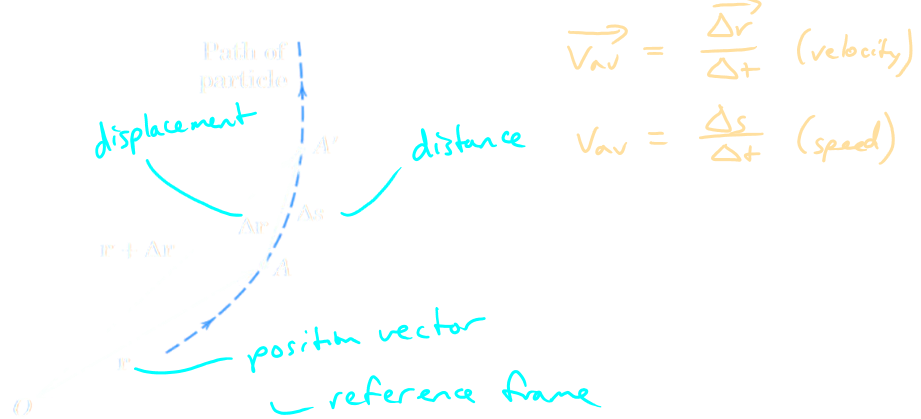 Path of
particle
displacement
A'
distance
Δr
Δs
r + Δr
A
r
position vector
reference frame
O
v_av = Δr/Δt (velocity)
v_av = Δs/Δt (speed)